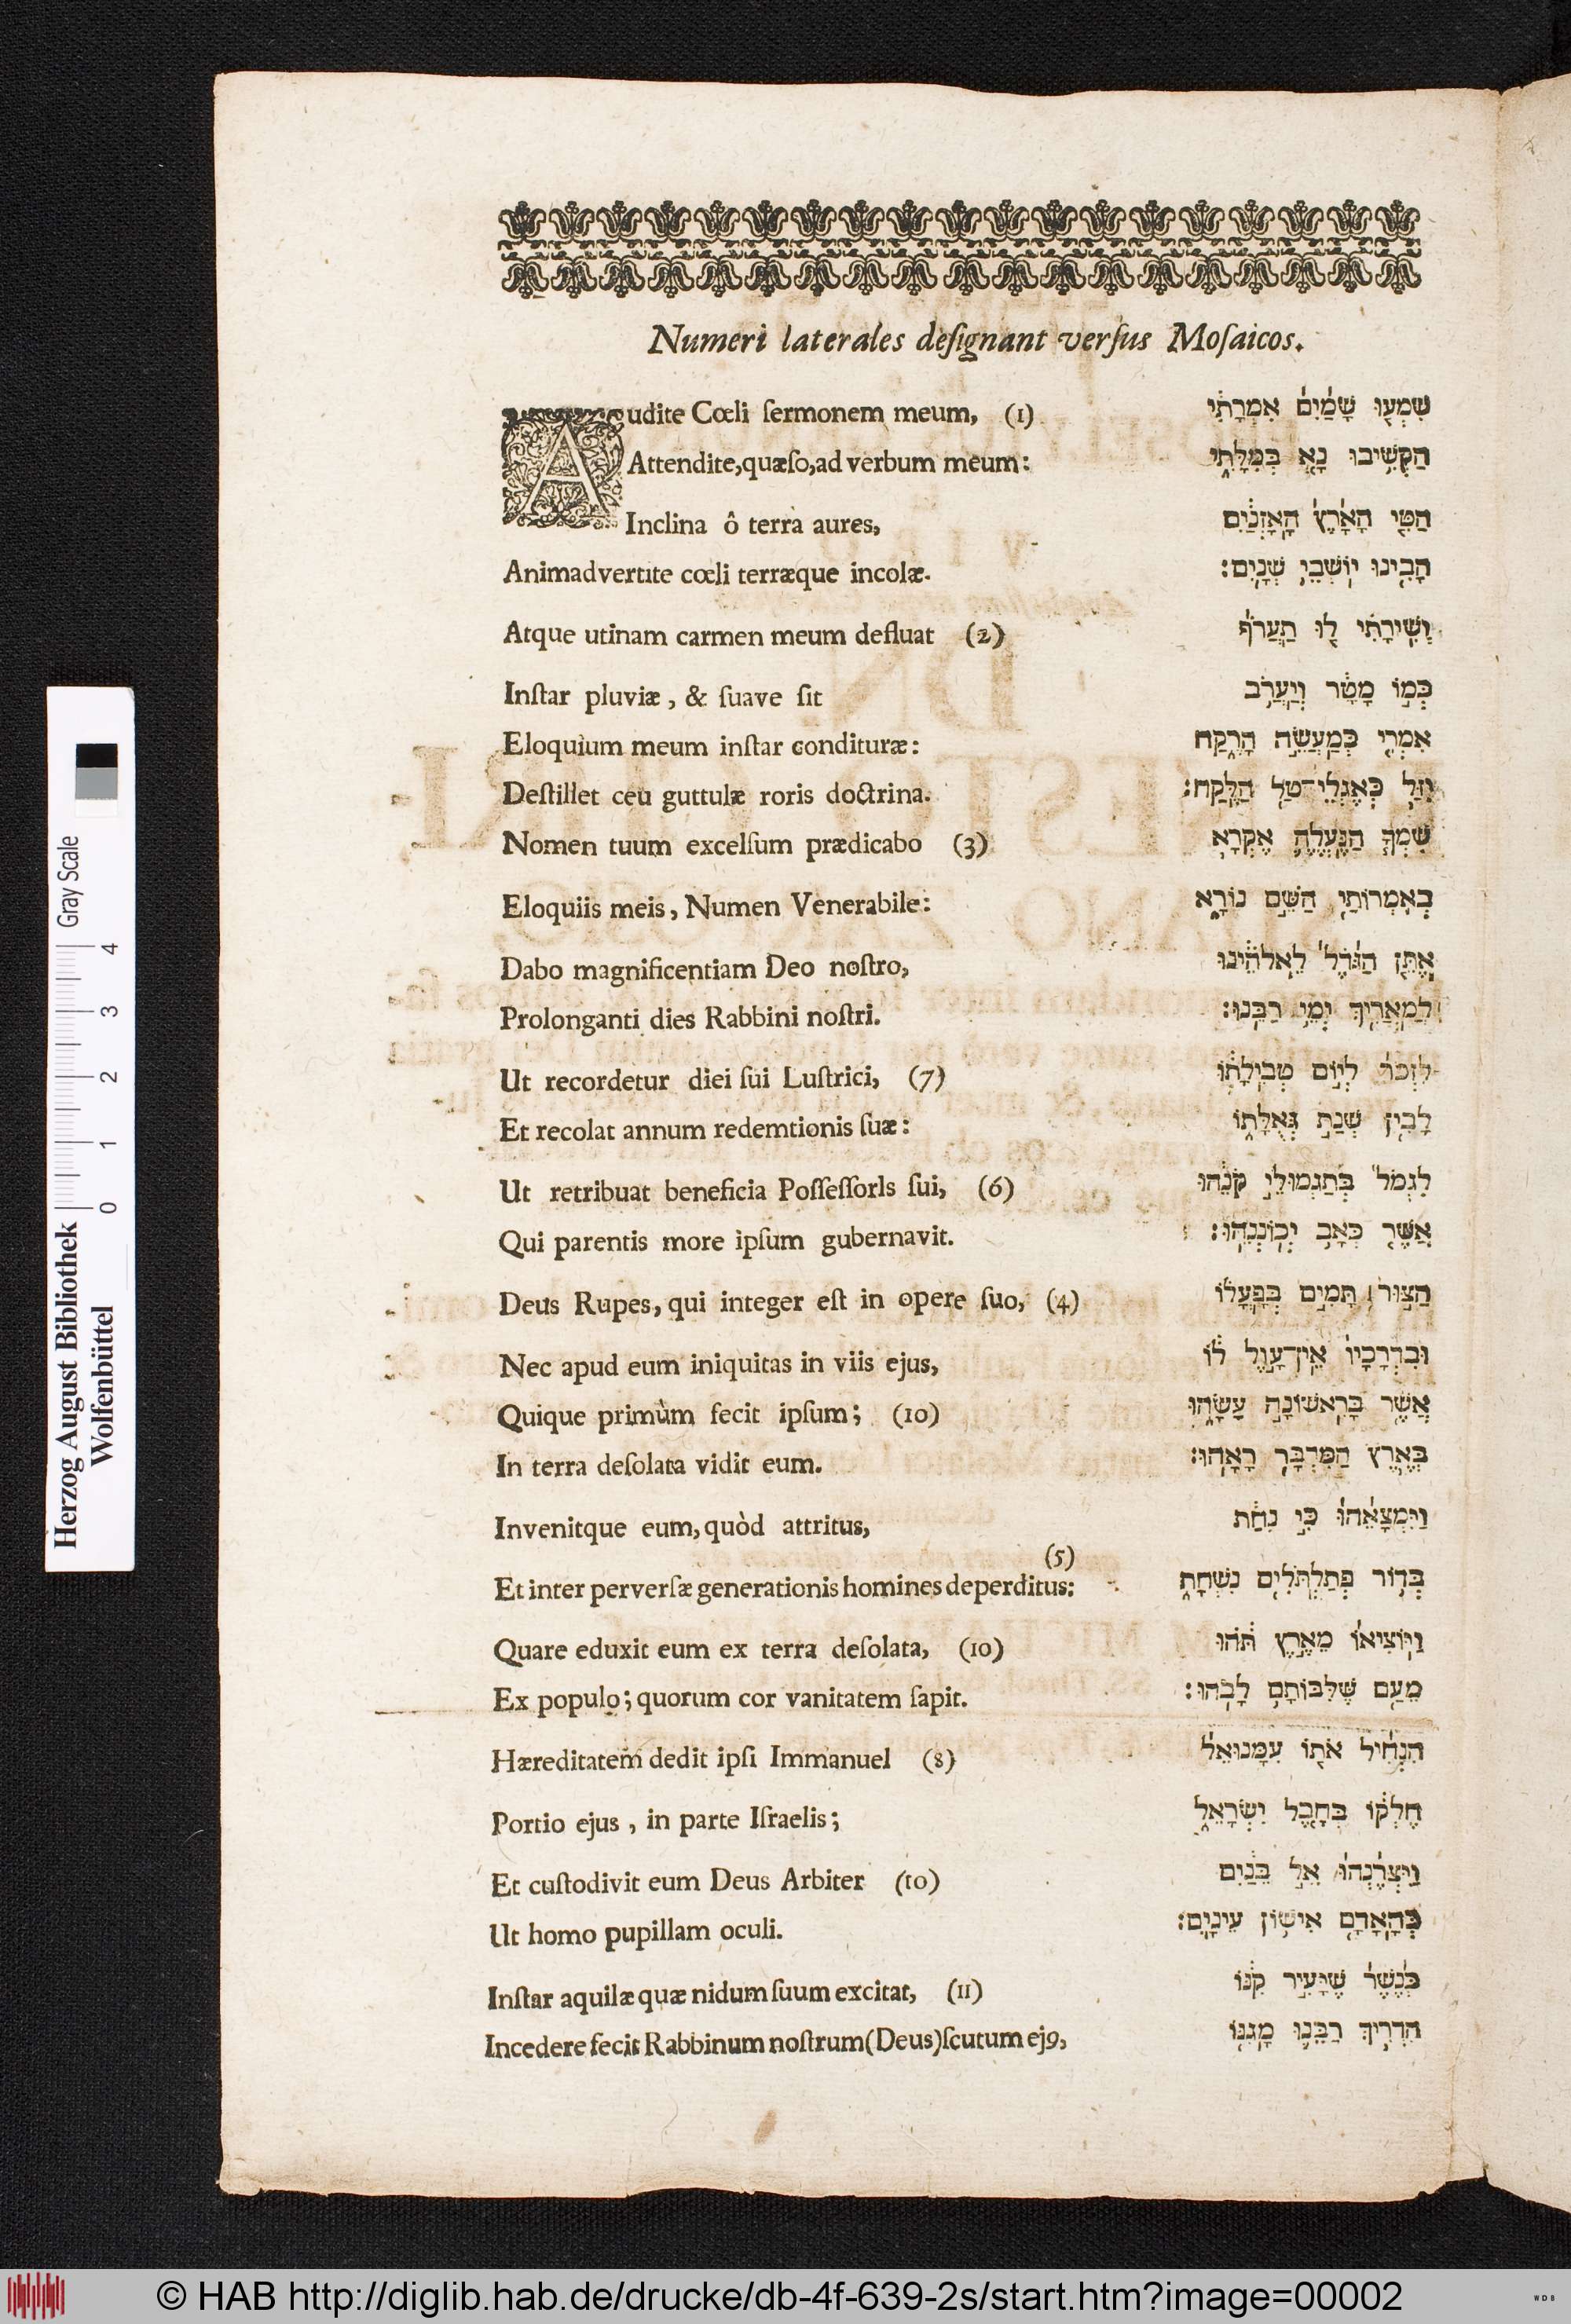 Numeri laterales deſignant verſus Moſaicos.
Audite Cœli ſermonem meum, (1) שִׁמְעוּ שָׁמַיִם אִמְרָתִי
Attendite,quæſo,ad verbum meum: הַקְשִׁיבוּ נָא בְּמִלָּתִי
Inclina ô terra aures, הַטִּי הָאָרֶץ הָאָזְנַיִם
Animadvertite cœli terræque incolæ. הָבִינוּ יוֹשְׁבֵי שְׁנָיִם:
Atque utinam carmen meum defluat (2) וְשִׁירָתִי לוּ תַעֲרֹף
Inſtar pluviæ, & ſuave ſit כְּמוֹ מָטָר וְיַעֲרֹב
Eloquium meum inſtar condituræ: אִמְרִי כְּמַעֲשֵׂה הָרֶקַח
Deſtillet ceu guttulæ roris doctrina. וְזַל כְּאֶגְלֵי־טַל הַלֶּקַח:
Nomen tuum excelſum prædicabo (3) שִׁמְךָ הַנַּעֲלֶה אֶקְרָא
Eloquiis meis, Numen Venerabile: בְּאִמְרוֹתַי הַשֵּׁם נוֹרָא
Dabo magnificentiam Deo noſtro, אֶתֵּן הַגֹּדֶל לֵאלֹהֵינוּ
Prolonganti dies Rabbini noſtri. לְמַאֲרִיךְ יְמֵי רַבֵּנוּ:
Ut recordetur diei ſui Luſtrici, (7) לִזְכֹּר לְיוֹם טְבִילָתוֹ
Et recolat annum redemtionis ſuæ: לָבִין שְׁנַת גְּאֻלָּתוֹ
Ut retribuat beneficia Poſſeſſorls ſui, (6) לִגְמֹל בְּתַגְמוּלֵי קֹנֵהוּ
Qui parentis more ipſum gubernavit. אֲשֶׁר כְּאָב יְכוֹנְנֵהוּ:
Deus Rupes, qui integer eſt in opere ſuo, (4) הַצּוּר תָּמִים בְּפָעֳלוֹ
Nec apud eum iniquitas in viis ejus, וּבִדְרָכָיו אֵין־עָוֶל לוֹ
Quique primùm fecit ipſum; (10) אֲשֶׁר בָּרִאשׁוֹנָה עָשָׂהוּ
In terra deſolata vidit eum. בְּאֶרֶץ הַמִּדְבָּר רָאָהוּ:
Invenitque eum,quòd attritus, וַיִּמְצָאֵהוּ כִּי נִחַת
(5)
Et inter perverſæ generationis homines deperditus: בְּדוֹר פְּתַלְתֻּלִים נִשְׁחָת
Quare eduxit eum ex terra deſolata, (10) וַיּוֹצִיאוֹ מֵאֶרֶץ תֹּהוּ
Ex populo; quorum cor vanitatem ſapit. מֵעַם שֶׁלִּבּוֹתָם לָבֹהוּ:
Hæreditatem dedit ipſi Immanuel (8) הִנְחִיל אֹתוֹ עִמָּנוּאֵל
Portio ejus, in parte Iſraelis; חֶלְקוֹ בְּחֶבֶל יִשְׂרָאֵל
Et cuſtodivit eum Deus Arbiter (10) וַיִּצְּרֶנְהוּ אֵל בֵּנַיִם
Ut homo pupillam oculi. כְּהָאָדָם אִישׁוֹן עֵינָיִם:
Inſtar aquilæ quæ nidum ſuum excitat, (11) כְּנֶשֶׁר שֶׁיָּעִיר קִנּוֹ
Incedere fecit Rabbinum noſtrum(Deus)ſcutum ej9, הִדְרִיךְ רַבֵּנוּ מָגִנּוֹ
Herzog August Bibliothek
Wolfenbüttel
0 1 2 3 4
Gray Scale
© HAB http://diglib.hab.de/drucke/db-4f-639-2s/start.htm?image=00002
WDB